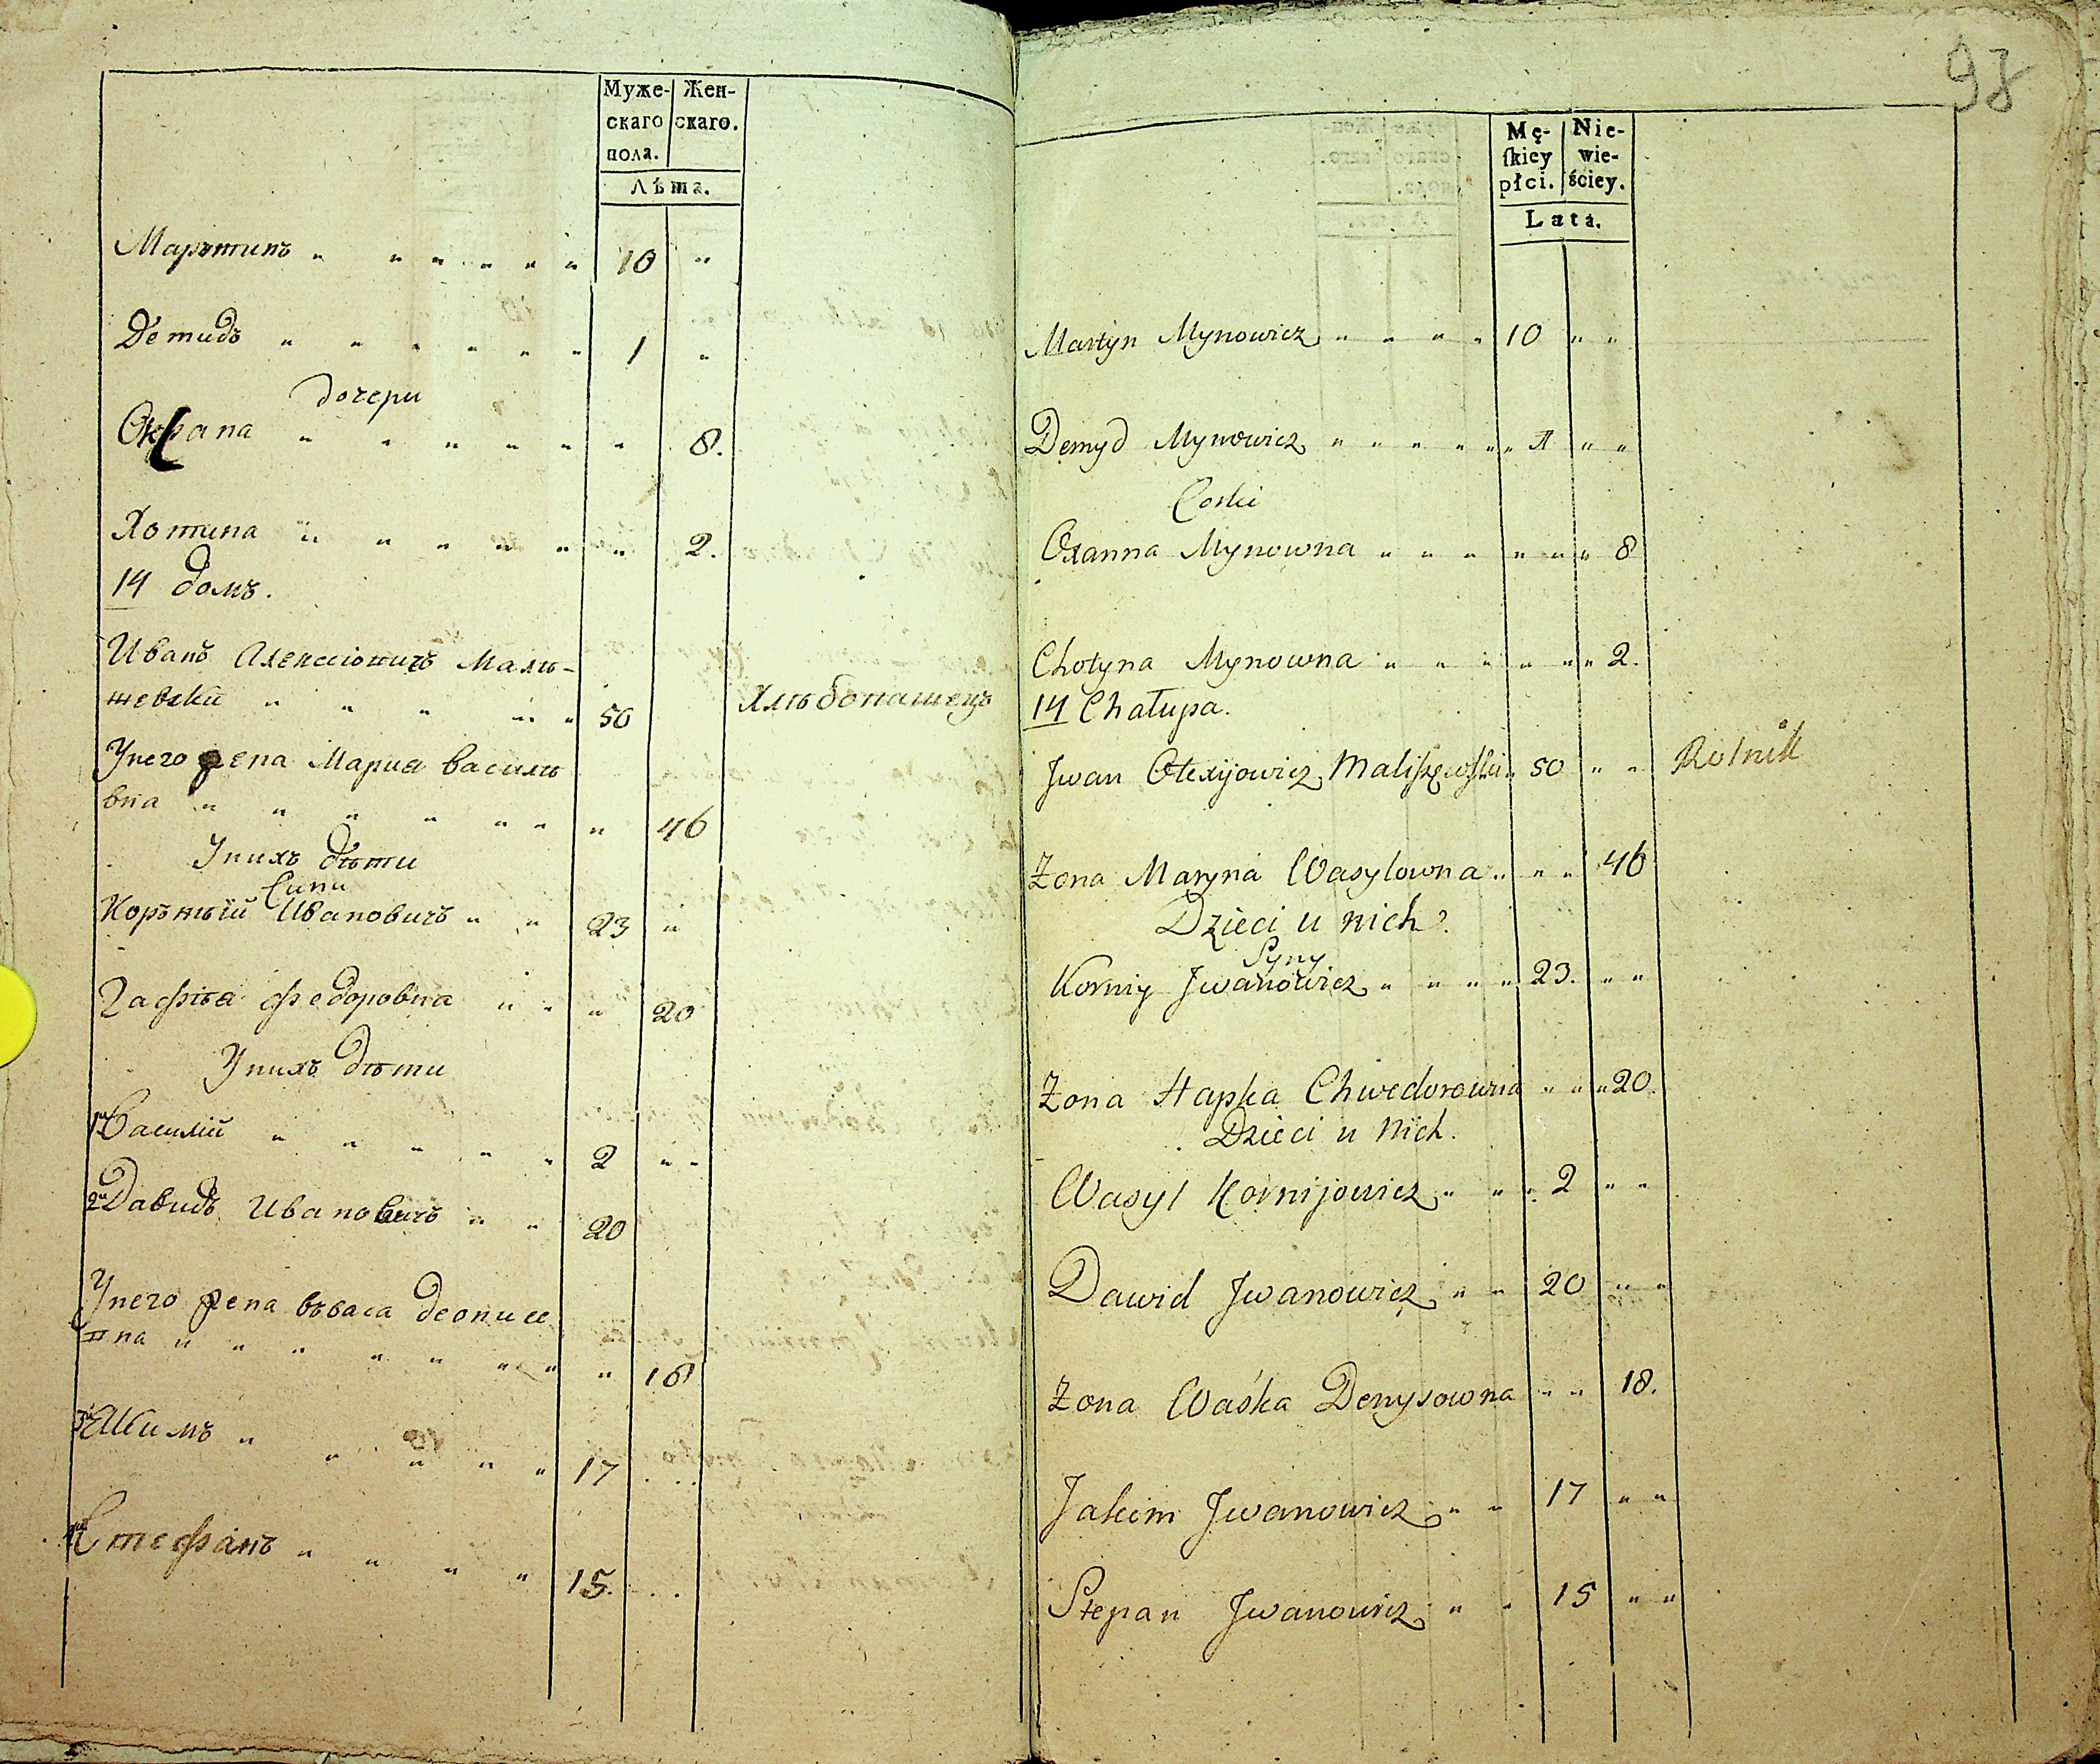 Муже- Жен-
скаго скаго.
пола.
Лѣта.
Мартинъ " " " " " " 10 "
Демидъ " " " " " " 1 "
дочери
Оксана " " " " " " 8.
Хотина " " " " " " 2.
14 домъ.
Иванъ Алексіовичъ Мали-
шевскій " " " " " 50 Хлѣбопашецъ
Унего жена Мариа василь
вна " " " " " " " 46
Унихъ дѣти
Сини
Корънѣй Ивановичъ " " 23 "
Гафіа Федоровна " " " 20
Унихъ дѣти
1й Василій " " " " " 2 " "
2й Давидъ Ивановичъ " " 20
Унего жена въваса деонисе
вна " " " " " " " " 18
3й Якимъ " " " " " 17 . .
4й Стефанъ " " " " 15. . .
98
Mę- Nie-
skiey wie-
płci. ściey.
Lata.
Martyn Mynowicz " " " " 10 " "
Demyd Mynowicz " " " " " " 1 " "
Corki
Oxanna Mynowna " " " " " " " 8
Chotyna Mynowna " " " " " " 2.
14 Chałupa.
Jwan Olexijowicz Maliszewski " 50 " " Rolnik
Żona Maryna Wasylowna " " " 46
Dzieci u nich.
Syny
Korniy Jwanowicz " " " " 23. " "
Żona Hapka Chwedorowna " " " 20.
Dzieci u nich.
Wasyl Kornijowicz " " " 2 " "
Dawid Jwanowicz " " 20 " "
Żona Waśka Denysowna " " 18.
Jakim Jwanowicz " " 17 " "
Stepan Jwanowicz " " 15 " "